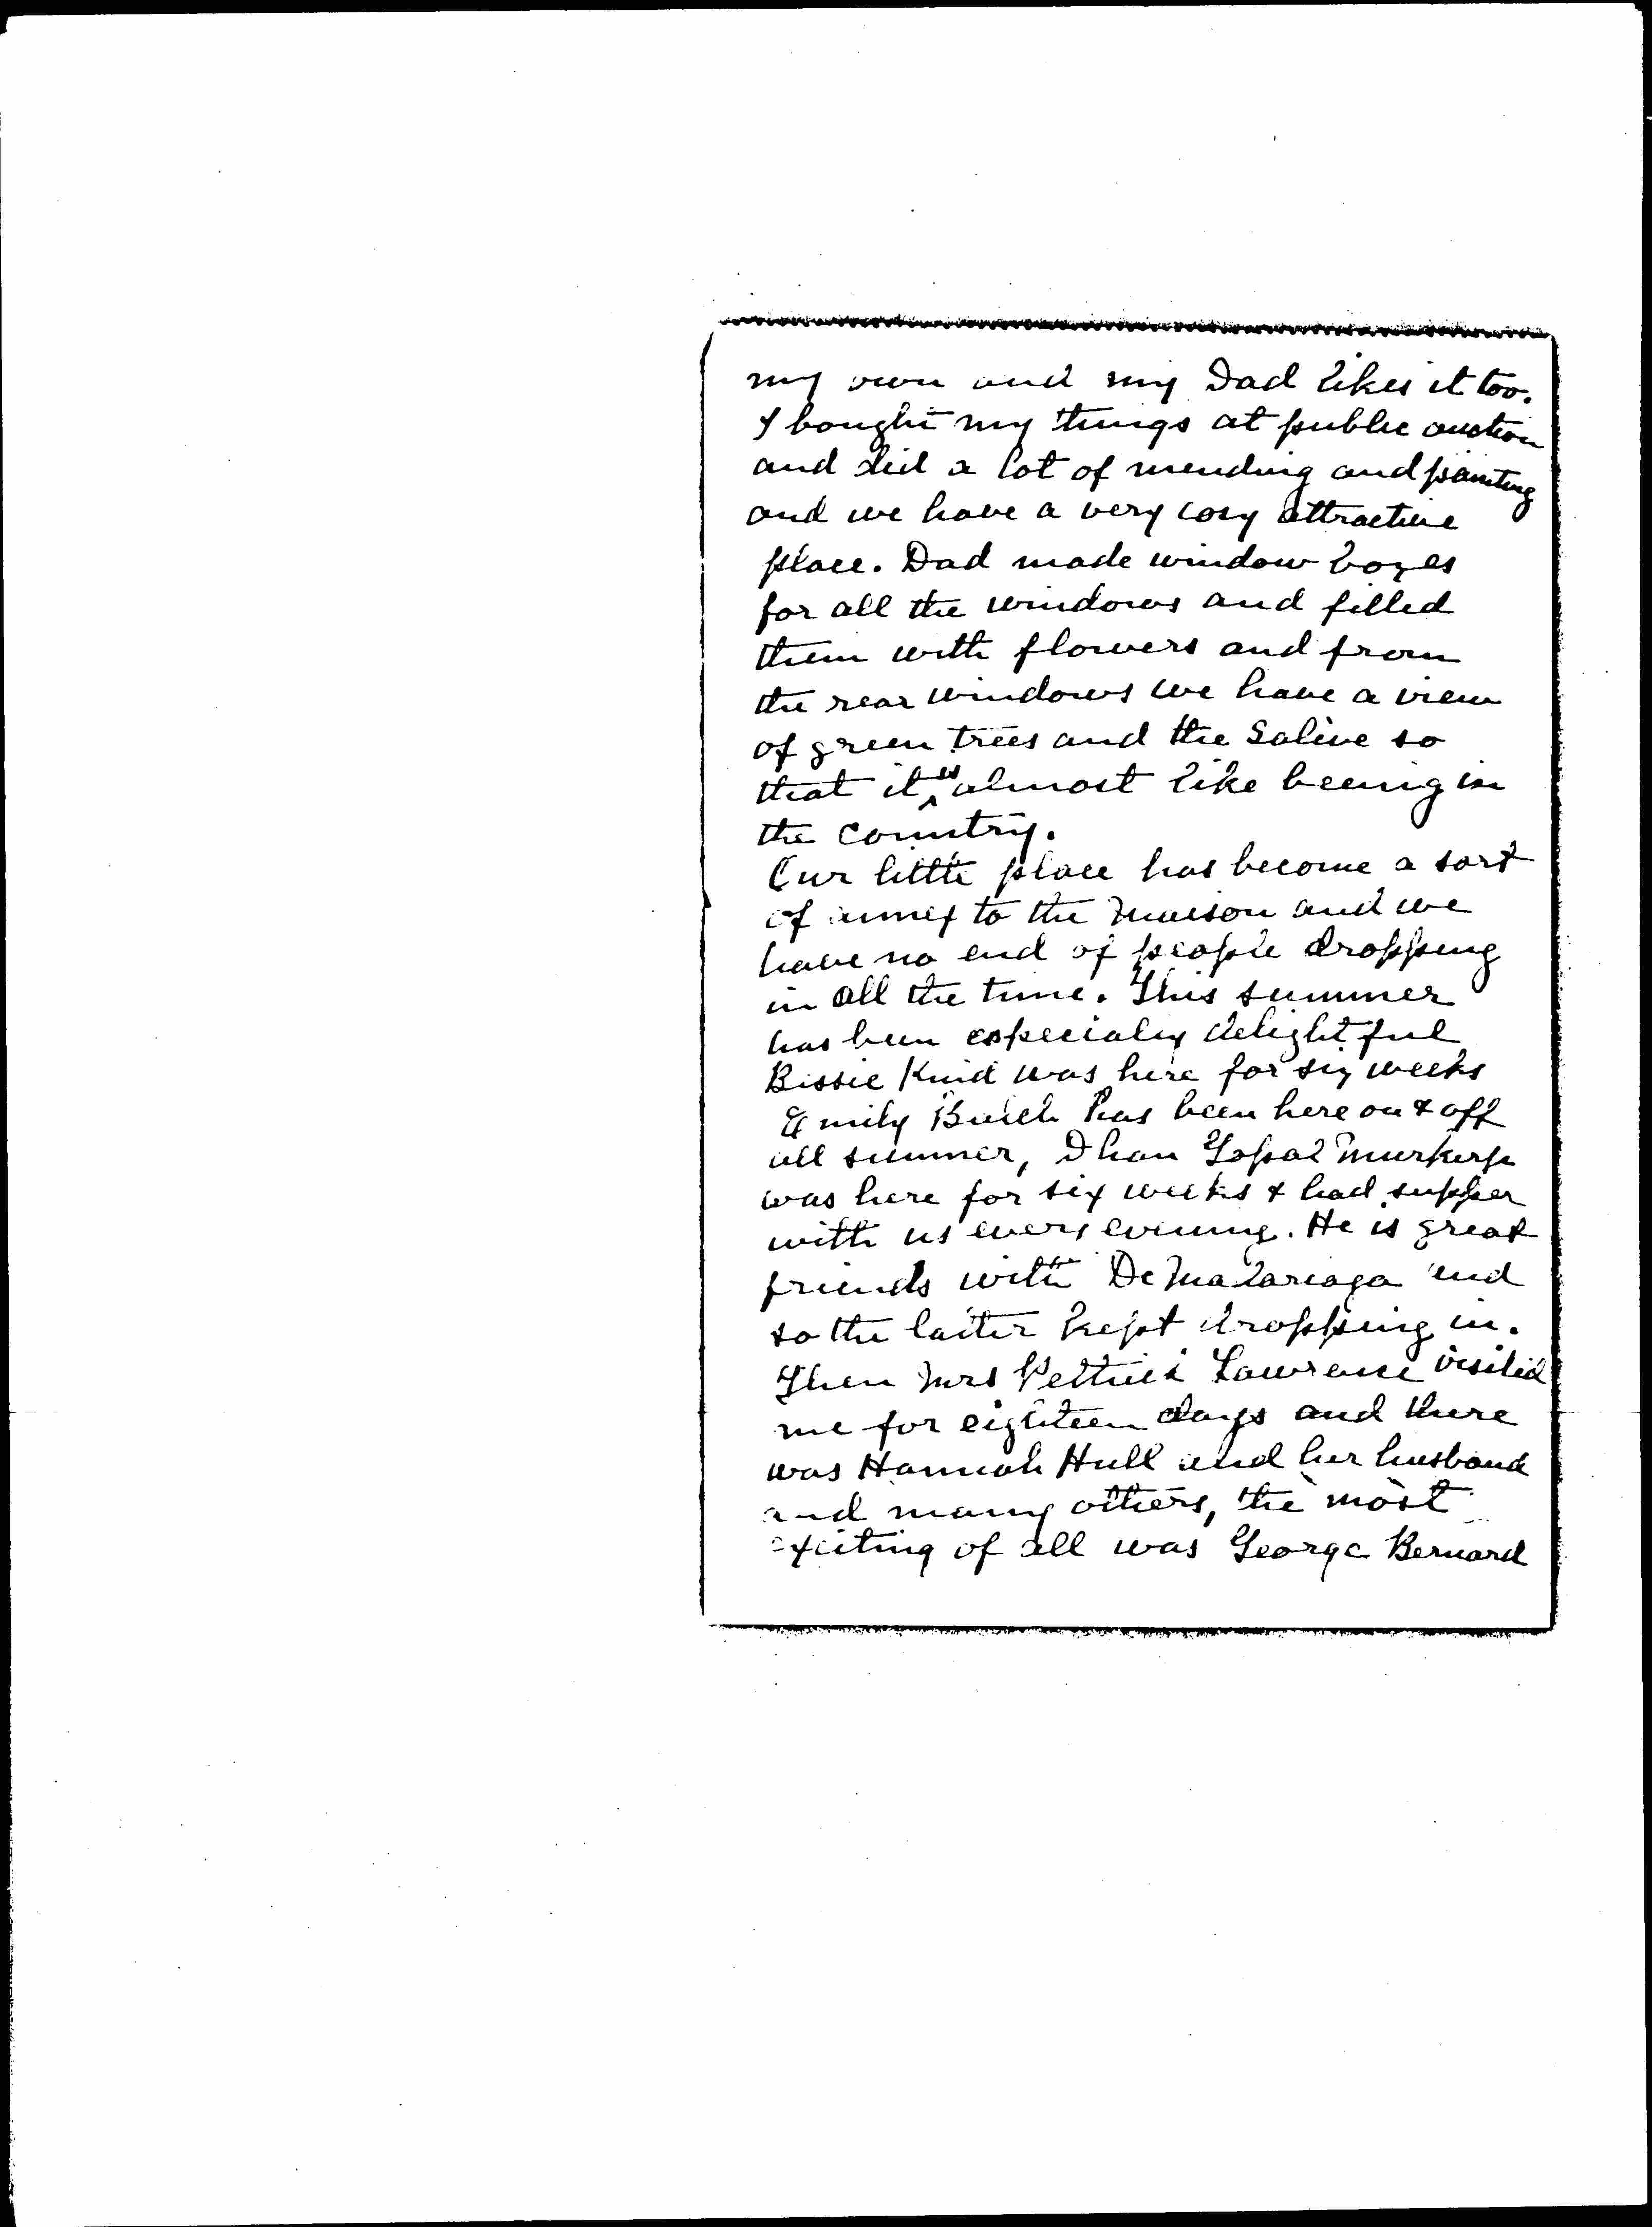 my own and my Dad likes it too.
I bought my things at public auction
and did a lot of mending and painting
and we have a very cosy attractive
place. Dad made window boxes
for all the windows and filled
them with flowers and from
the rear windows we have a view
of green trees and the Salive so
that it is almost like beeing in
the country.
Our little place has become a sort
of annex to the Maison and we
have no end of people dropping
in all the time. This summer
has been especialy delightful
Bissie Kind was here for six weeks
Emily Balch has been here on & off
all summer, Dhan Gopal Murkerje
was here for six weeks & had supper
with us every evening. He is great
friends with De Madariaga and
so the latter kept dropping in.
Then Mrs Pethick Lawrence visited
me for eighteen days and there
was Hannah Hull and her husband
and many others, the most
exciting of all was George Bernard